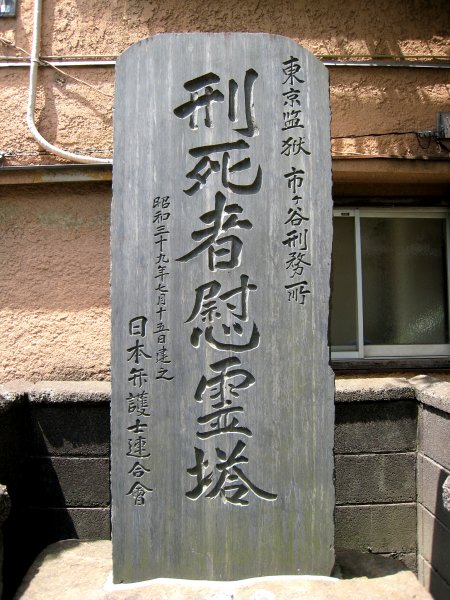 東京監獄 市ヶ谷刑務所
刑死者慰霊塔
昭和三十九年七月十五日建之
日本弁護士連合會